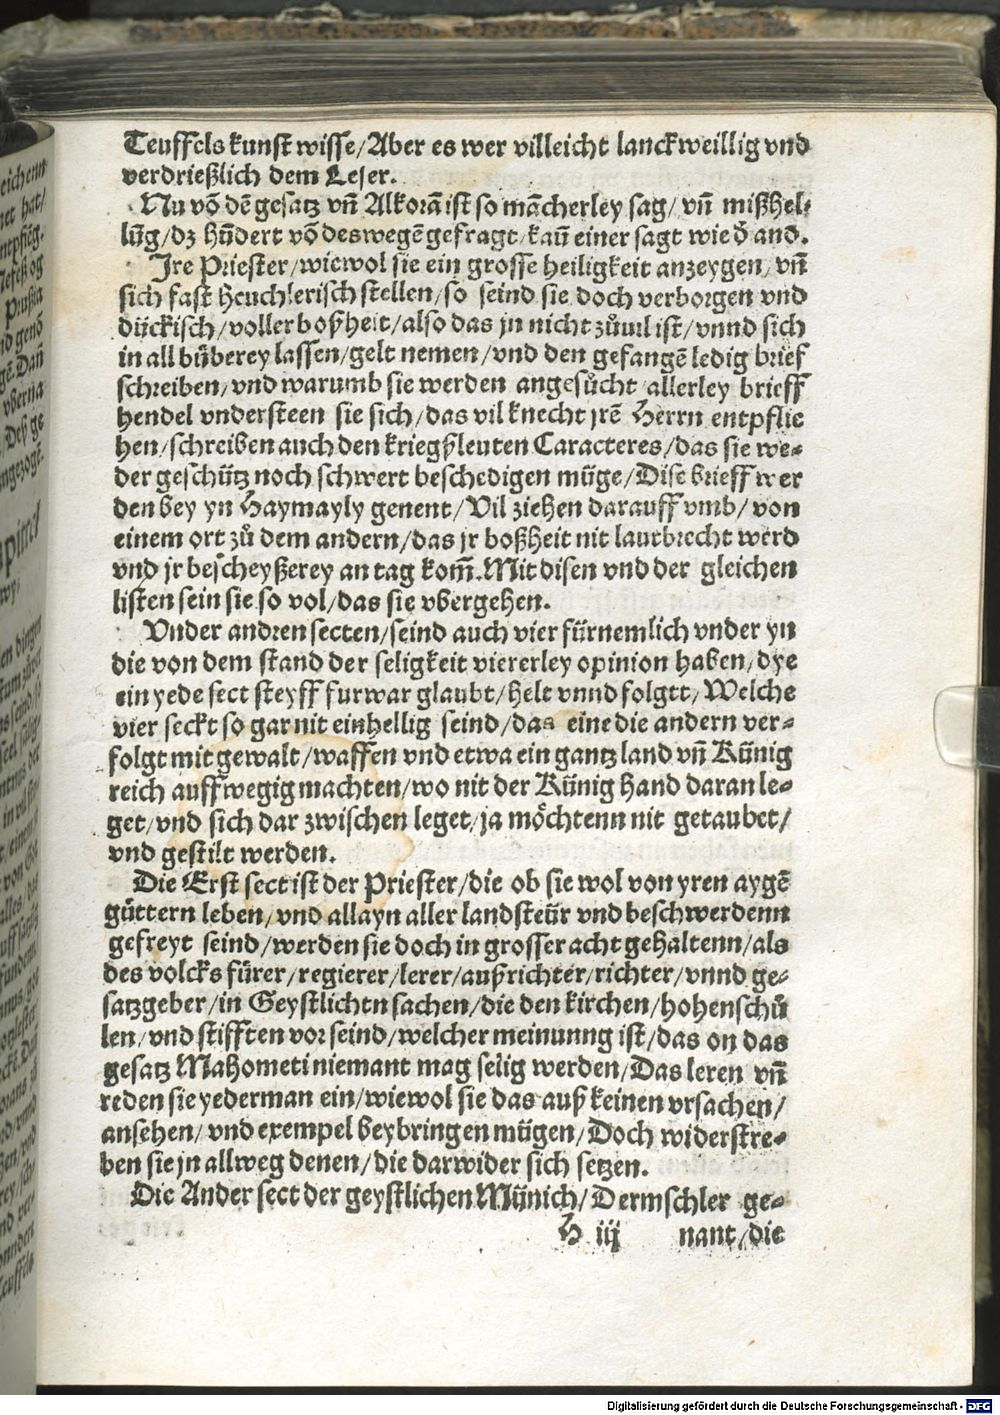 Teuffels kunst wisse/Aber es wer villeicht lanckweillig vnd
verdrießlich dem Leser.
Nu võ dẽ gesatz vñ Alkorã ist so mãcherley sag/ vñ mißhel-
lũg/dz hũdert võ deswegẽ gefragt/kaũ einer sagt wie d̄ and̄.
Jre Priester/wiewol sie ein grosse heiligkeit anzeygen/vñ
sich fast heuchlerisch stellen/so seind sie doch verborgen vnd
dückisch/voller boßheit/also das jn nicht zůuil ist/vnnd sich
in all büberey lassen/gelt nemen/vnd den gefangẽ ledig brief
schreiben/vnd warumb sie werden angesůcht/allerley brieff
hendel vndersteen sie sich/das vil knecht jrẽ Herrn entpflie
hen/schreiben auch den kriegßleuten Caracteres/das sie we-
der geschütz noch schwert beschedigen müge/Dise brieff wer
den bey yn Haymayly genent/Vil ziehen darauff vmb/von
einem ort zů dem andern/das jr boßheit nit lautbrecht werd
vnd jr bescheyßerey an tag kom̃.Mit disen vnd der gleichen
listen sein sie so vol/das sie vbergehen.
Vnder andren secten/seind auch vier fürnemlich vnder yn
die von dem stand der seligkeit viererley opinion haben/dye
ein yede sect steyff furwar glaubt/helt vnnd folgtt/Welche
vier seckt so gar nit einhellig seind/das eine die andern ver-
folgt mit gewalt/waffen vnd etwa ein gantz land vñ Künig
reich auffwegig machten/wo nit der Künig hand daran le-
get/vnd sich dar zwischen leget/ja möchtenn nit getaubet/
vnd gestilt werden.
Die Erst sect ist der Priester/die ob sie wol von yren aygẽ
güttern leben/vnd allayn aller landsteür vnd beschwerdenn
gefreyt seind/werden sie doch in grosser acht gehaltenn/als
des volcks fürer/regierer/lerer/außrichter/richter/vnnd ge-
satzgeber/in Geystlichtn sachen/die den kirchen/hohenschů
len/vnd stifften vor seind/welcher meinunng ist/das on das
gesatz Mahometi niemant mag selig werden/Das leren vñ
reden sie yederman ein/wiewol sie das auß keinen vrsachen/
ansehen/vnd exempel beybringen mügen/Doch widerstre-
ben sie jn allweg denen/die darwider sich setzen.
Die Ander sect der geystlichen Münich/Dermschler ge-
H iij nant/die
Digitalisierung gefördert durch die Deutsche Forschungsgemeinschaft - DFG